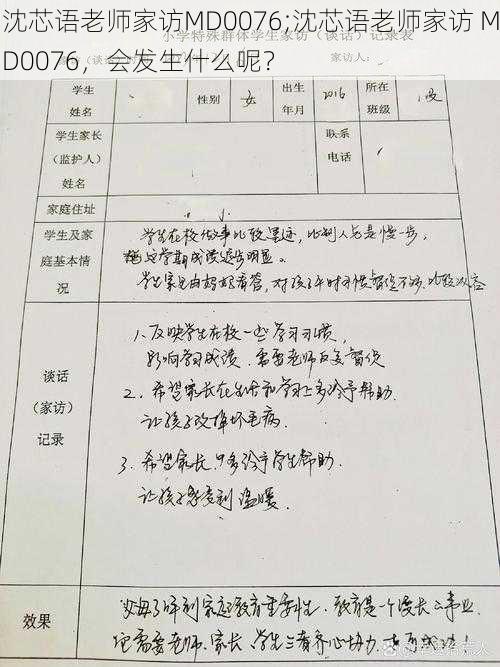 沈芯语老师家访MD0076;沈芯语老师家访 M
D0076，会发生什么呢？
小学特殊群体学生家访（谈话）记录表
家访人：
学生
姓名
性别
女
出生
年月
2016
所在
班级
学生家长
（监护人）
姓名
联系
电话
家庭住址
学生及家
庭基本情
况
学生在校做事比较墨迹，比别人总是慢一步，
这学期成绩退步明显。
谈话
（家访）
记录
1、反映学生在校一些学习习惯，
影响学习成绩，需要老师反复督促
2、希望家长在生活和学习上多给予帮助.
让孩子改掉坏毛病.
3、希望家长 多给予学生帮助.
让孩子感受到温暖.
效果
父母了解到家庭教育重要性，教育是一个漫长的事业
它需要老师、家长、学生三者齐心协力，